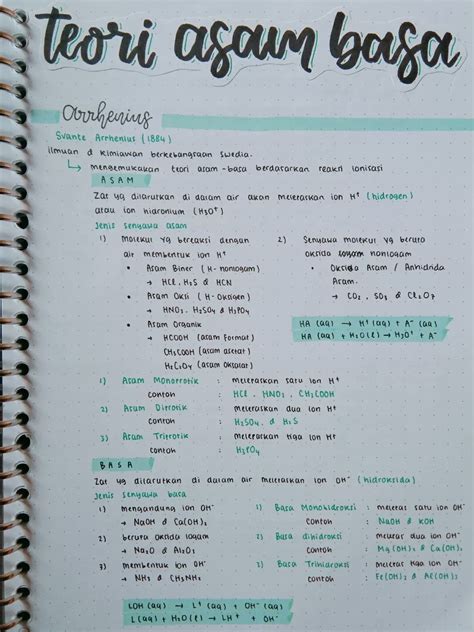 teori asam basa
Arrhenius
Svante Arrhenius (1884)
ilmuan & kimiawan berkebangsaan Swedia.
↳ mengemukakan teori asam-basa berdasarkan reaksi ionisasi
ASAM
Zat yg dilarutkan di dalam air akan melepaskan ion H⁺ (hidrogen)
atau ion hidronium (H₃O⁺)
Jenis senyawa asam
1) Molekul yg bereaksi dengan
air membentuk ion H⁺
• Asam Biner (H-nonlogam)
→ HCl, H₂S & HCN
• Asam Oksi (H-Oksigen)
→ HNO₃, H₂SO₄ & H₃PO₄
• Asam Organik
→ HCOOH (asam format)
CH₃COOH (asam asetat)
H₂C₂O₄ (asam oksalat)
2) Senyawa molekul yg berupa
oksida nonlogam
• Oksida Asam / Anhidrida
Asam.
→ CO₂, SO₃ & Cl₂O₇
HA (aq) → H⁺(aq) + A⁻ (aq)
HA (aq) + H₂O(l) → H₃O⁺ + A⁻
1) Asam Monoprotik : melepaskan satu ion H⁺
contoh : HCl, HNO₃, CH₃COOH
2) Asam Diprotik : melepaskan dua ion H⁺
contoh : H₂SO₄ & H₂S
3) Asam Triprotik : melepaskan tiga ion H⁺
contoh : H₃PO₄
BASA
Zat yg dilarutkan di dalam air melepaskan ion OH⁻ (hidroksida)
Jenis senyawa basa
1) mengandung ion OH⁻
→ NaOH & Ca(OH)₂
2) berupa oksida logam
→ Na₂O & Al₂O₃
3) membentuk ion OH⁻
→ NH₃ & CH₃NH₂
1) Basa Monohidroksi : melepas satu ion OH⁻
contoh : NaOH & KOH
2) Basa dihidroksi : melepas dua ion OH⁻
contoh : Mg(OH)₂ & Ca(OH)₂
3) Basa Trihidroksi : melepas tiga ion OH⁻
contoh : Fe(OH)₃ & Al(OH)₃
LOH (aq) → L⁺ (aq) + OH⁻ (aq)
L(aq) + H₂O(l) → LH⁺ + OH⁻